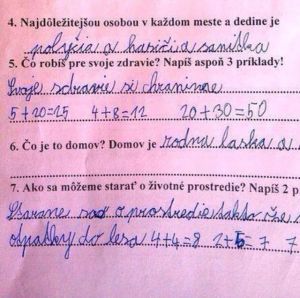 4. Najdôležitejšou osobou v každom meste a dedine je
polyčia a hasiči a sanitka
5. Čo robíš pre svoje zdravie? Napíš aspoň 3 príklady!
Svoje zdravie si chranime
5+20=25 4+8=12 20+30=50
6. Čo je to domov? Domov je rodna laska a
7. Ako sa môžeme starať o životné prostredie? Napíš 2 p
Starame sa o prostredie takto že
odpatky do lesa 4+4=8 2+5=7 7